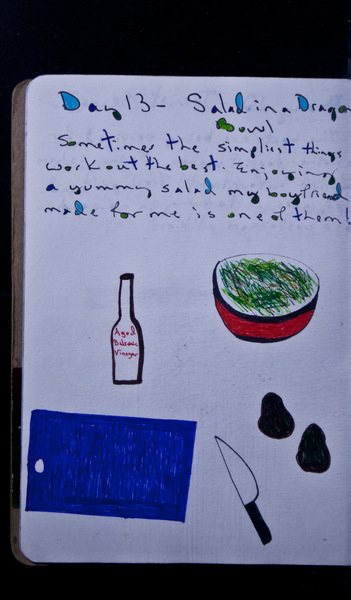 Day 13 - Salad in a Dragon
Bowl
Sometimes the simpliest things
work out the best. Enjoying
a yummy salad my boyfriend
made for me is one of them!
Aged
Balsamic
Vinegar